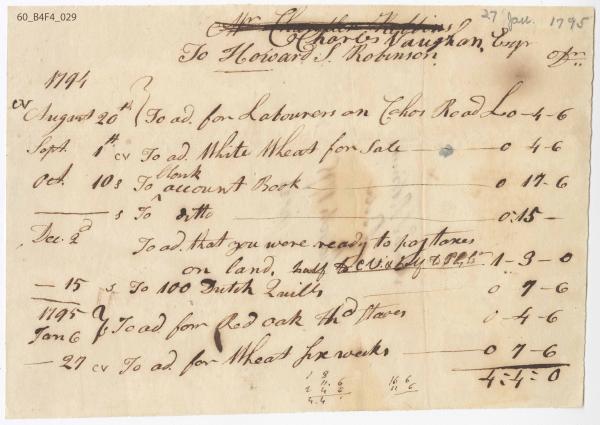 60_B4F4_029
27 Jan. 1795
Mr
Charles Vaughan, Esqr
To Howard S. Robinson Dr
1794
cv August 20th To ad. for Labourers on Echos Road £0-4-6
Sept. 1st cv To ad. White Wheat for Sale 0 4-6
Oct. 10 s To blank account Book 0 17-6
s To ditto 0:15-
Dec. 2d To ad. that you were ready to pay taxes
on land, half to C.V. & half to 1-3-0
- 15 s To 100 Dutch Quills 0 7-6
1795
Jan 6 To ad for Red Oak Hhd staves 0 -4-6
- 27 cv To ad. for Wheat six weeks 0 7-6
4:4:0
1 8
11.6
2 4 6
4.4
16 6
11 6